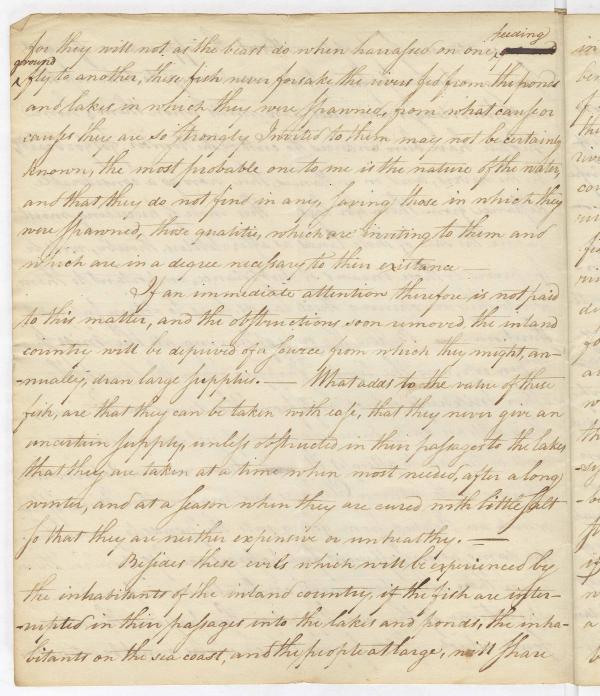 for they will not as the beast do when harrassed on one feeding
ground fly to another, these fish never forsake the rivers fed from the ponds
and lakes in which they were spawned, from what cause or
causes they are so strongly Invited to them may not be certainly
known, the most probable one to me is the nature of the water,
and that, they do not find in any, saving those in which they
were spawned, those qualities, which are inviting to them and
which are in a degree necessary to their existance —
If an immediate attention therefore is not paid
to this matter, and the obstructions soon removed, the inland
country will be deprived of a source from which they might, an-
-nually, draw large supplies. — What adds to the value of these
fish, are that they can be taken with ease, that they never give an
uncertain supply, unless obstructed in their passages to the lakes
that they are taken at a time when most needed, after a long
winter, and at a season when they are cured with little salt
so that they are neither expensive or unhealthy. —
Besides these evils which will be experienced by
the inhabitants of the inland country, if the fish are inter-
-rupted in their passages into the lakes and ponds, the inha-
bitants on the sea coast, and the people at large, will share